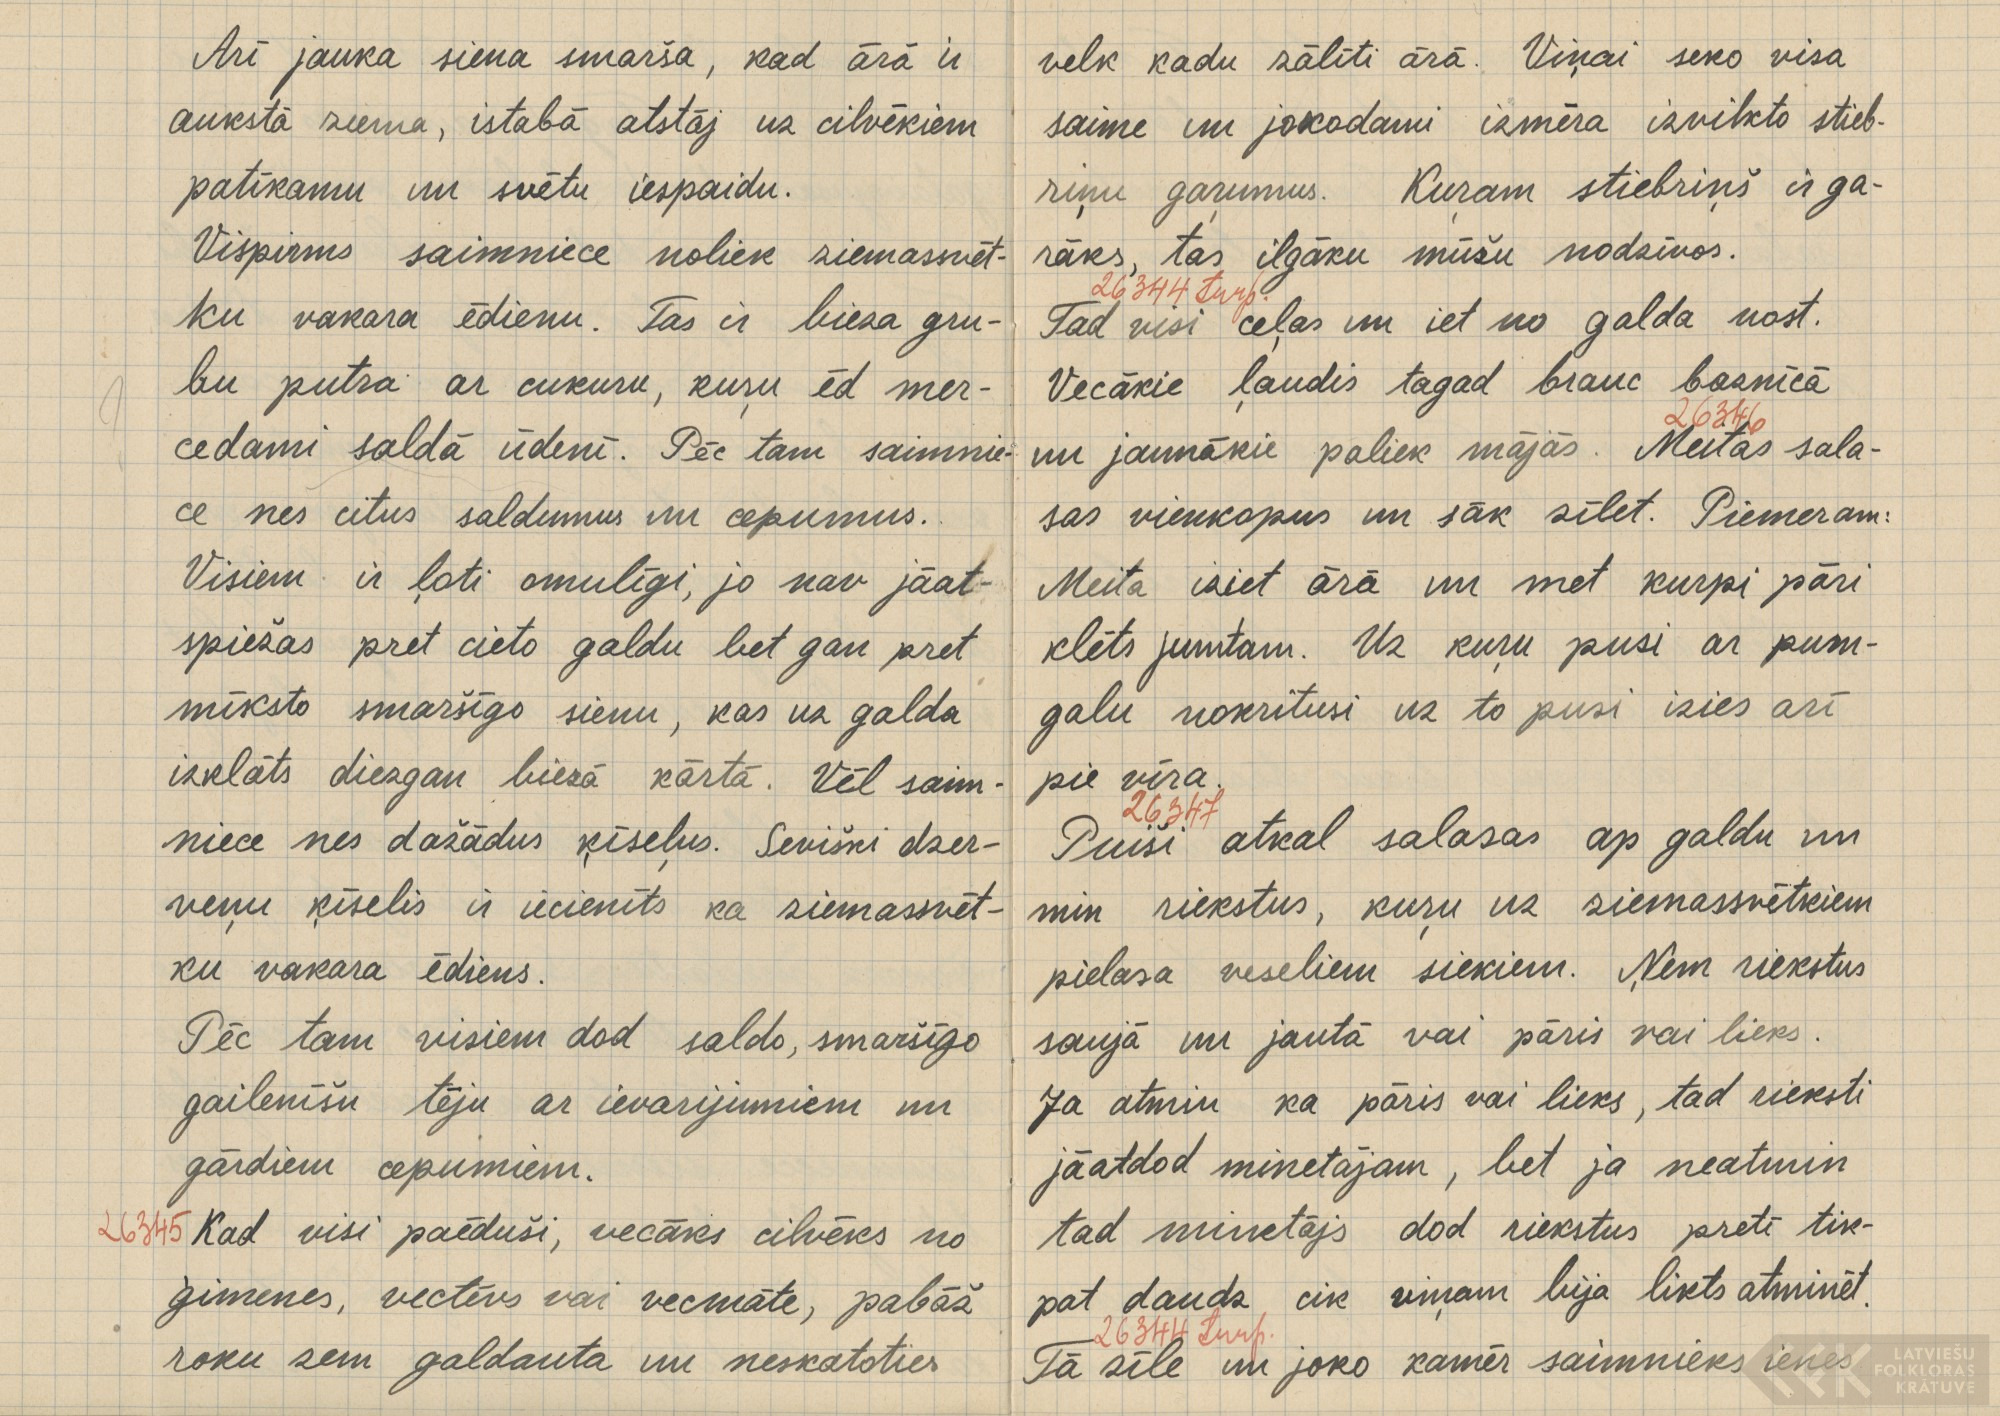 Arī jauka siena smarša, kad ārā ir
aukstā ziema, istabā atstāj uz cilvēkiem
patīkamu un svētu iespaidu.
Vispirms saimniece noliek ziemassvēt-
ku vakara ēdienu. Tas ir bieza gru-
bu putra ar cukuru, kuŗu ēd mer-
cedami saldā ūdenī. Pēc tam saimnie-
ce nes citus saldumus un cepumus.
Visiem ir ļoti omulīgi, jo nav jāat-
spiežas pret cieto galdu bet gan pret
mīksto smaršīgo sienu, kas uz galda
izklāts diezgan biezā kārtā. Vēl saim-
niece nes dažādus ķīseļus. Seviški dzer-
veņu ķīselis ir iecienīts ka ziemassvēt-
ku vakara ēdiens.
Pēc tam visiem dod saldo, smaršīgo
gailenīšu tēju ar ievarijumiem un
gārdiem cepumiem.
26345 Kad visi paēduši, vecāks cilvēks no
ģimenes, vectēvs vai vecmāte, pabāž
roku zem galdauta un neskatoties
velk kadu zālīti ārā. Viņai seko visa
saime un jokodami izmēra izvilkto stieb-
riņu gaŗumus. Kuŗam stiebriņš ir ga-
rāks, tas ilgāku mūšu nodzīvos.
26344 turp.
Tad visi ceļas un iet no galda nost.
Vecākie ļaudis tagad brauc baznīcā
26346
un jaunākie paliek mājās. Meitas sala-
sas vienkopus un sāk zīlet. Piemeram:
Meita iziet ārā un met kurpi pāri
klēts jumtam. Uz kuŗu pusi ar purn-
galu nokritusi uz to pusi izies arī
pie vīra.
26347
Puiši atkal salasas ap galdu un
min riekstus, kuŗu uz ziemassvētkiem
pielasa veseliem siekiem. Ņem riekstus
saujā un jautā vai pāris vai lieks.
Ja atmin ka pāris vai lieks, tad rieksti
jāatdod minetājam, bet ja neatmin
tad minetājs dod riekstus pretī tik-
pat daudz cik viņam bija likts atminēt.
26344 turp.
Tā zīle un joko kamēr saimnieks ienes
LATVIEŠU
FOLKLORAS
KRĀTUVE